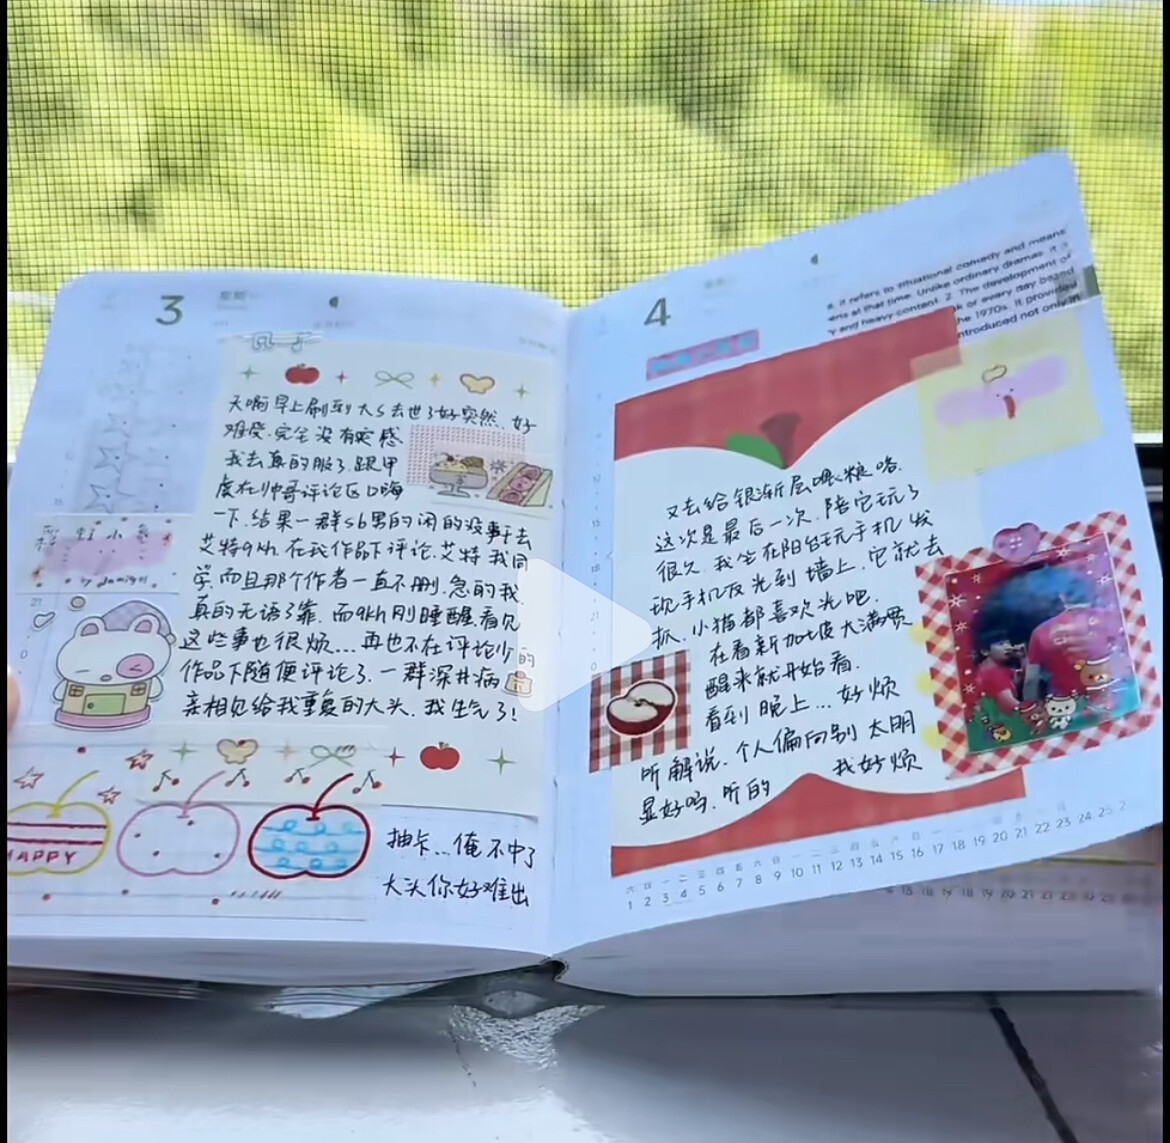 3
天啊早上刷到大S去世了好突然、好
难受.完全没有实感
我去真的服了.跟甲
虔在帅哥评论区口嗨
一下.结果一群sb男的闲的没事干去
艾特9kh.在我作品下评论.艾特我同
学.而且那个作者一直不删.急的我.
真的无语了靠.而9kh刚睡醒看见
这些事也很烦...再也不在评论少的
作品下随便评论了.一群深井病
亲相见给我重复的大头.我生气了!
HAPPY
抽卡...俺不中了
大头你好难出
4
e. it refers to situational comedy and means
ens at that time. Unlike ordinary dramas. It is
Y and heavy content. 2. The development of
k or every day based
he 1970s. It provided
ntroduced not only in
又去给银渐层喂粮咯.
这次是最后一次.陪它玩了
很久.我坐在阳台玩手机发
现手机反光到墙上.它就去
抓.小猫都喜欢光吧.
在看新加坡大满贯
醒来就开始看.
看到晚上...好烦
听解说.个人偏向别太明
显好吗.听的 我好烦
六 日 一 二 三 四 五 六 日 一 二 三 四 五 六 日 一
1 2 3 4 5 6 7 8 9 10 11 12 13 14 15 16 17 18 19 20 21 22 23 24 25